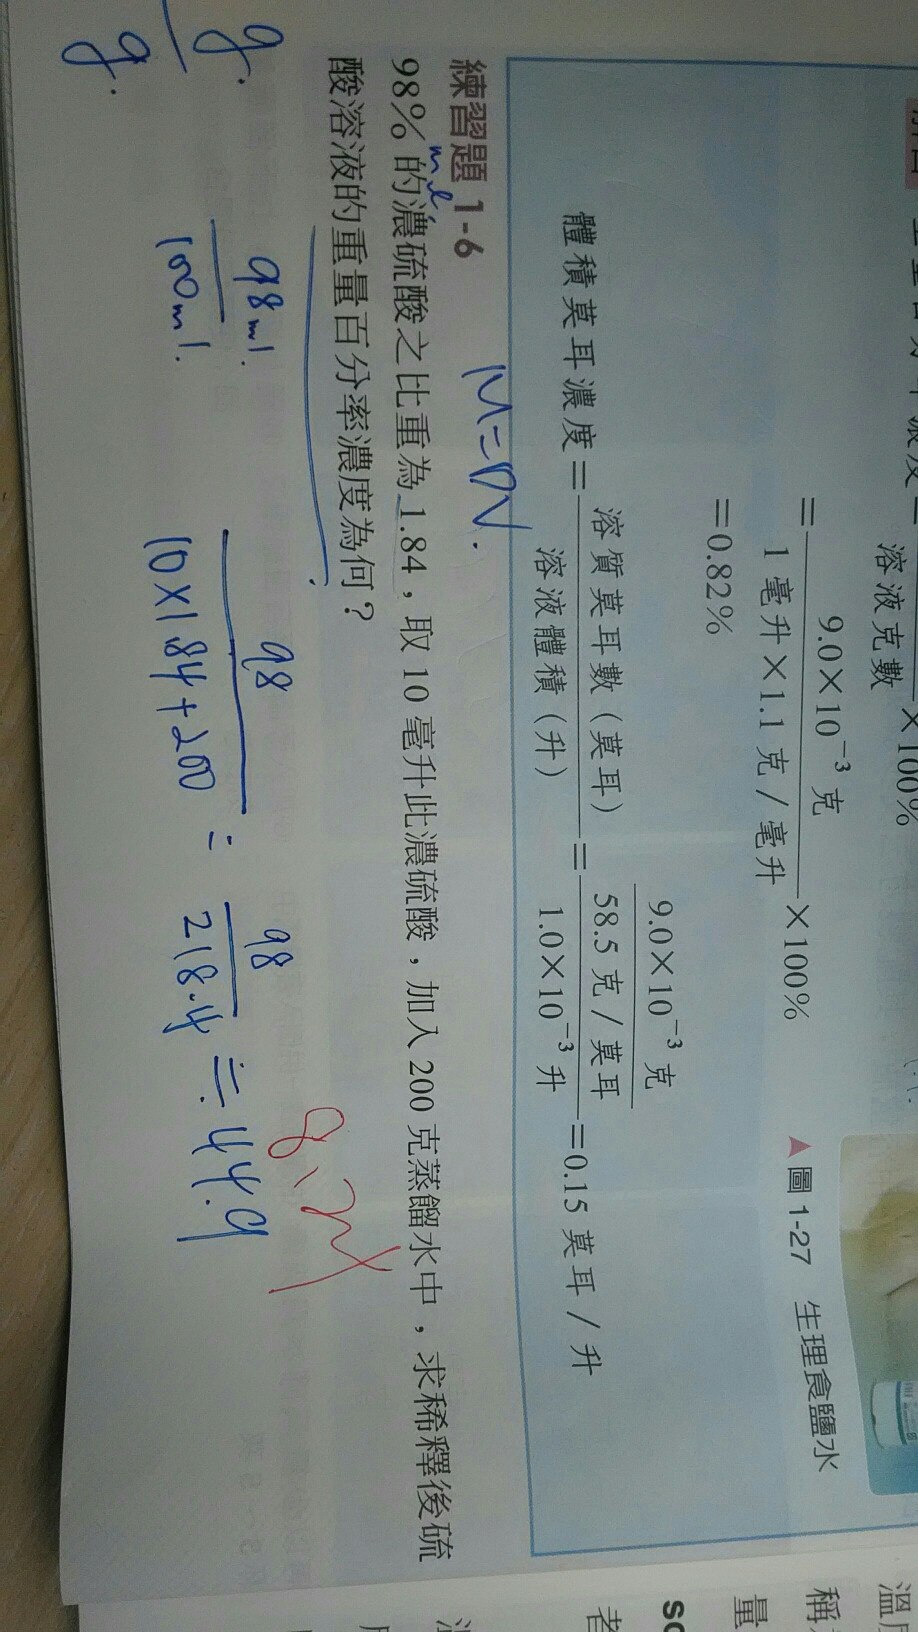 溶液克數
×100%
9.0×10⁻³ 克
= ―――――――― ×100%
1 毫升×1.1 克／毫升
=0.82%
▲圖 1-27 生理食鹽水
9.0×10⁻³ 克
體積莫耳濃度= 溶質莫耳數（莫耳） = 58.5 克／莫耳 =0.15 莫耳／升
溶液體積（升） 1.0×10⁻³ 升
M=DV.
練習題 1-6
ml
98% 的濃硫酸之比重為 1.84，取 10 毫升此濃硫酸，加入 200 克蒸餾水中，求稀釋後硫
酸溶液的重量百分率濃度為何？
8.24
g.
g.
98ml.
100ml.
98
10×1.84+200
=
98
218.4
≒ 44.9
溫
稱
量
so
者